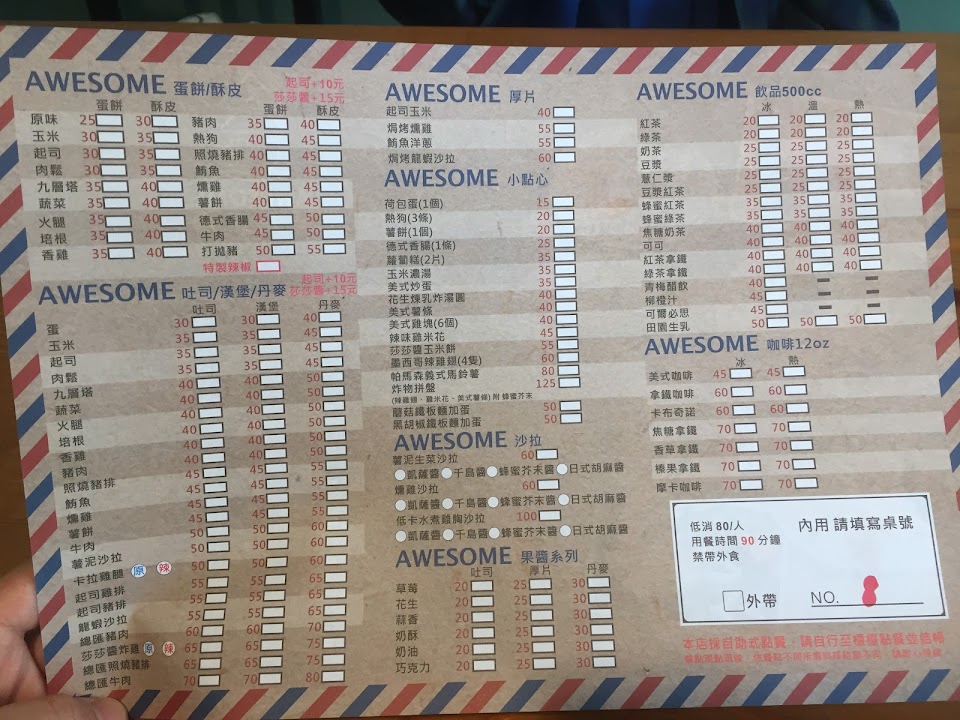 AWESOME 蛋餅/酥皮
起司+10元
莎莎醬+15元
蛋餅 酥皮 蛋餅 酥皮
原味 25 30 豬肉 35 40
玉米 30 35 熱狗 35 40
起司 30 35 照燒豬排 40 45
肉鬆 30 35 鮪魚 40 45
九層塔 35 40 燻雞 40 45
蔬菜 35 40 薯餅 40 45
火腿 35 40 德式香腸 45 50
培根 35 40 牛肉 45 50
香雞 35 40 打拋豬 50 55
特製辣椒
AWESOME 吐司/漢堡/丹麥
起司+10元
莎莎醬+15元
吐司 漢堡 丹麥
蛋 30 30 40
玉米 35 35 45
起司 35 35 45
肉鬆 35 35 45
九層塔 40 40 50
蔬菜 40 40 50
火腿 40 40 50
培根 40 40 50
香雞 40 40 50
豬肉 40 40 50
照燒豬排 45 45 55
鮪魚 45 45 55
燻雞 45 45 55
薯餅 45 45 55
牛肉 50 50 60
薯泥沙拉 50 50 60
卡拉雞腿 原 辣 50 50 60
起司雞排 55 55 65
起司豬排 55 55 65
龍蝦沙拉 55 55 65
總匯豬肉 60 60 70
莎莎醬炸雞 原 辣 65 65 75
總匯照燒豬排 65 65 75
總匯牛肉 70 70 80
AWESOME 厚片
起司玉米 40
焗烤燻雞 55
鮪魚洋蔥 55
焗烤龍蝦沙拉 60
AWESOME 小點心
荷包蛋(1個) 15
熱狗(3條) 20
薯餅(1個) 20
德式香腸(1條) 25
蘿蔔糕(2片) 35
玉米濃湯 35
美式炒蛋 35
花生煉乳炸湯圓 40
美式薯條 40
美式雞塊(6個) 40
辣味雞米花 45
莎莎醬玉米餅 55
墨西哥辣雞翅(4隻) 60
帕馬森義式馬鈴薯 80
炸物拼盤 125
(辣雞翅、雞米花、美式薯條) 附 蜂蜜芥末
蘑菇鐵板麵加蛋 50
黑胡椒鐵板麵加蛋 50
AWESOME 沙拉
薯泥生菜沙拉 60
凱薩醬 千島醬 蜂蜜芥末醬 日式胡麻醬
燻雞沙拉 60
凱薩醬 千島醬 蜂蜜芥末醬 日式胡麻醬
低卡水煮雞胸沙拉 100
凱薩醬 千島醬 蜂蜜芥末醬 日式胡麻醬
AWESOME 果醬系列
吐司 厚片 丹麥
草莓 20 25 30
花生 20 25 30
蒜香 20 25 30
奶酥 20 25 30
奶油 20 25 30
巧克力 20 25 30
AWESOME 飲品500cc
冰 溫 熱
紅茶 20 20 20
綠茶 20 20 20
奶茶 25 25 25
豆漿 25 25 25
薏仁漿 25 25 25
豆漿紅茶 25 25 25
蜂蜜紅茶 35 35 35
蜂蜜綠茶 35 35 35
焦糖奶茶 40 40 40
可可 40 40 40
紅茶拿鐵 40 40 40
綠茶拿鐵 40 40 40
青梅醋飲 45
柳橙汁 45
可爾必思 45
田園生乳 50 50 50
AWESOME 咖啡12oz
冰 熱
美式咖啡 45 45
拿鐵咖啡 60 60
卡布奇諾 60 60
焦糖拿鐵 70 70
香草拿鐵 70 70
榛果拿鐵 70 70
摩卡咖啡 70 70
低消 80/人
用餐時間 90 分鐘
禁帶外食
內用 請填寫桌號
外帶
NO. 8
本店採自助式點餐，請自行至櫃檯點餐並結帳